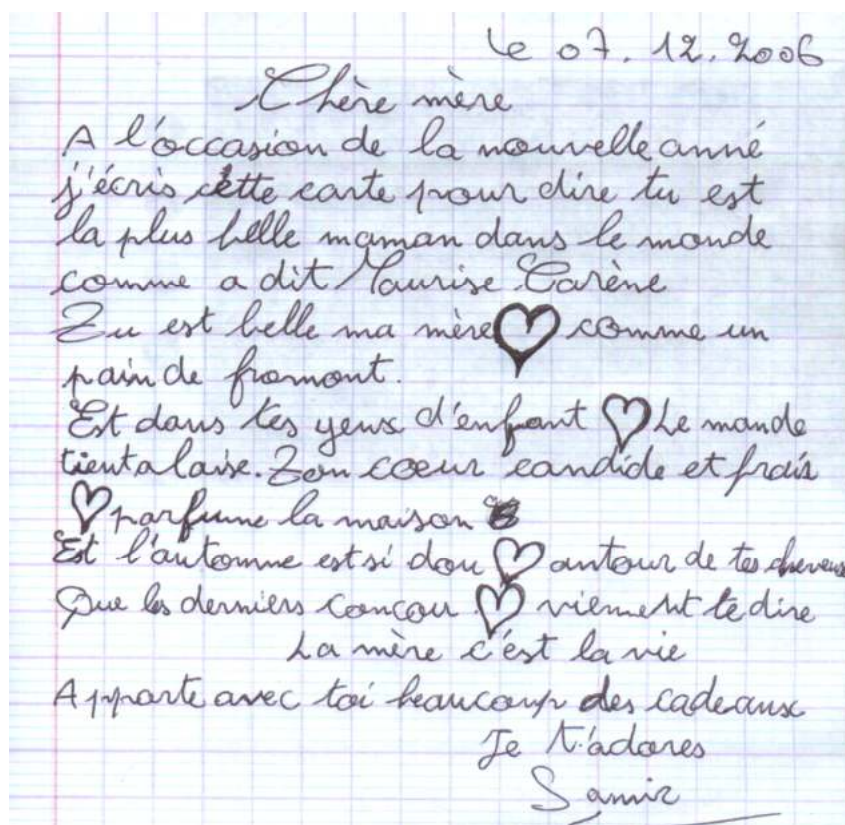 Le 07. 12. 2006
Chère mère
A l'occasion de la nouvelle anné
j'écris cette carte pour dire tu est
la plus belle maman dans le monde
comme a dit Maurise Carène
Tu est belle ma mère comme un
pain de fromont.
Est dans tes yeux d'enfant Le monde
tient a laise. Ton coeur candide et frais
parfume la maison
Est l'automne est si dou autour de tes cheveux
Que les derniers concou viennent te dire
La mère c'est la vie
Apporte avec toi beaucoup des cadeaux
Je t'adores
Samir